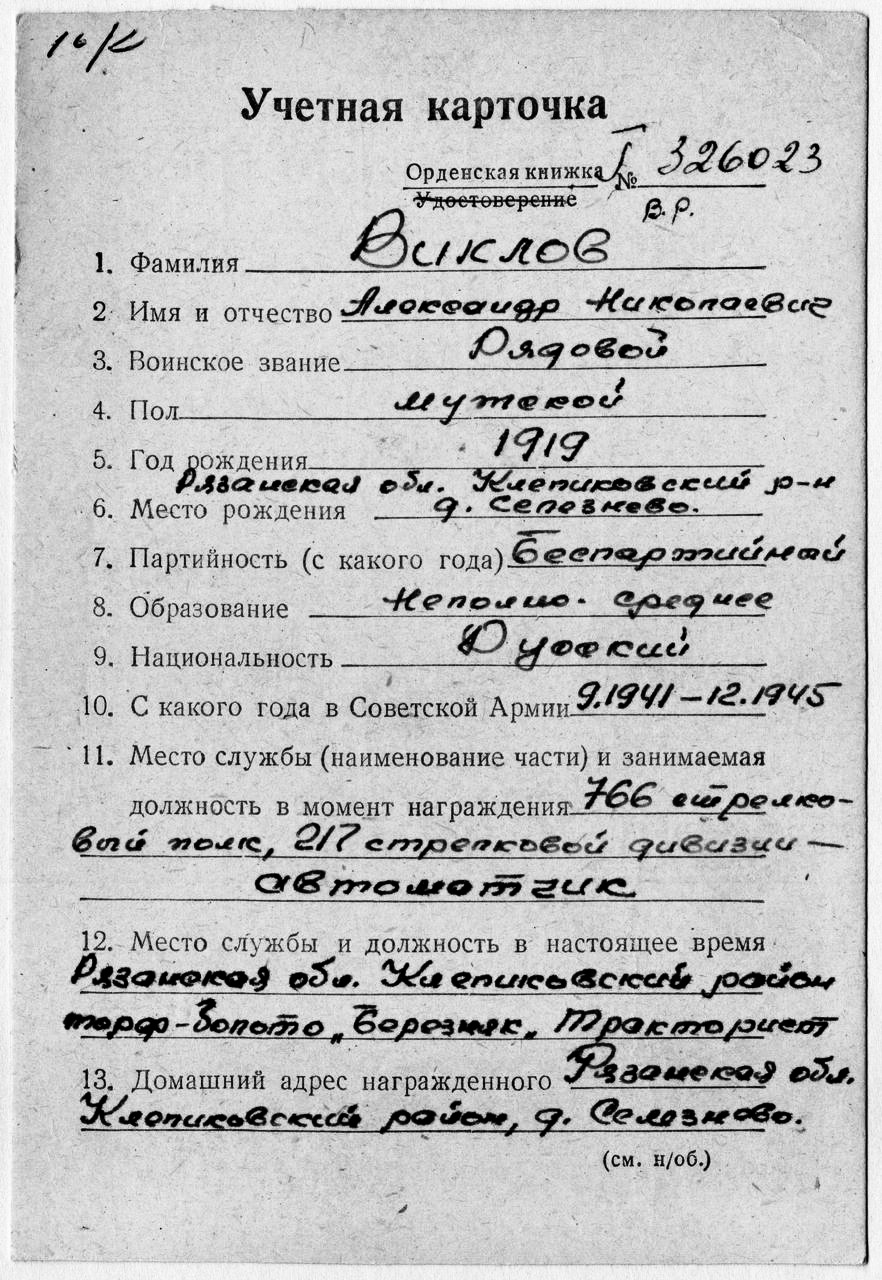 16/К
Учетная карточка
Орденская книжка № Г 326023
Удостоверение
В. Р.
1. Фамилия Виклов
2 Имя и отчество Александр Николаевич
3. Воинское звание Рядовой
4. Пол мужской
5. Год рождения 1919
Рязанская обл. Клепиковский р-н
6. Место рождения д. Селезнево.
7. Партийность (с какого года) Беспартийный
8. Образование Неполно-среднее
9. Национальность Русский
10. С какого года в Советской Армии 9.1941-12.1945
11. Место службы (наименование части) и занимаемая
должность в момент награждения 766 стрелко-
вый полк, 217 стрелковой дивизии —
автоматчик
12. Место службы и должность в настоящее время
Рязанская обл. Клепиковский район
торф-болото „Березняк„ тракторист
13. Домашний адрес награжденного Рязанская обл.
Клепиковский район, д. Селезнево.
(см. н/об.)